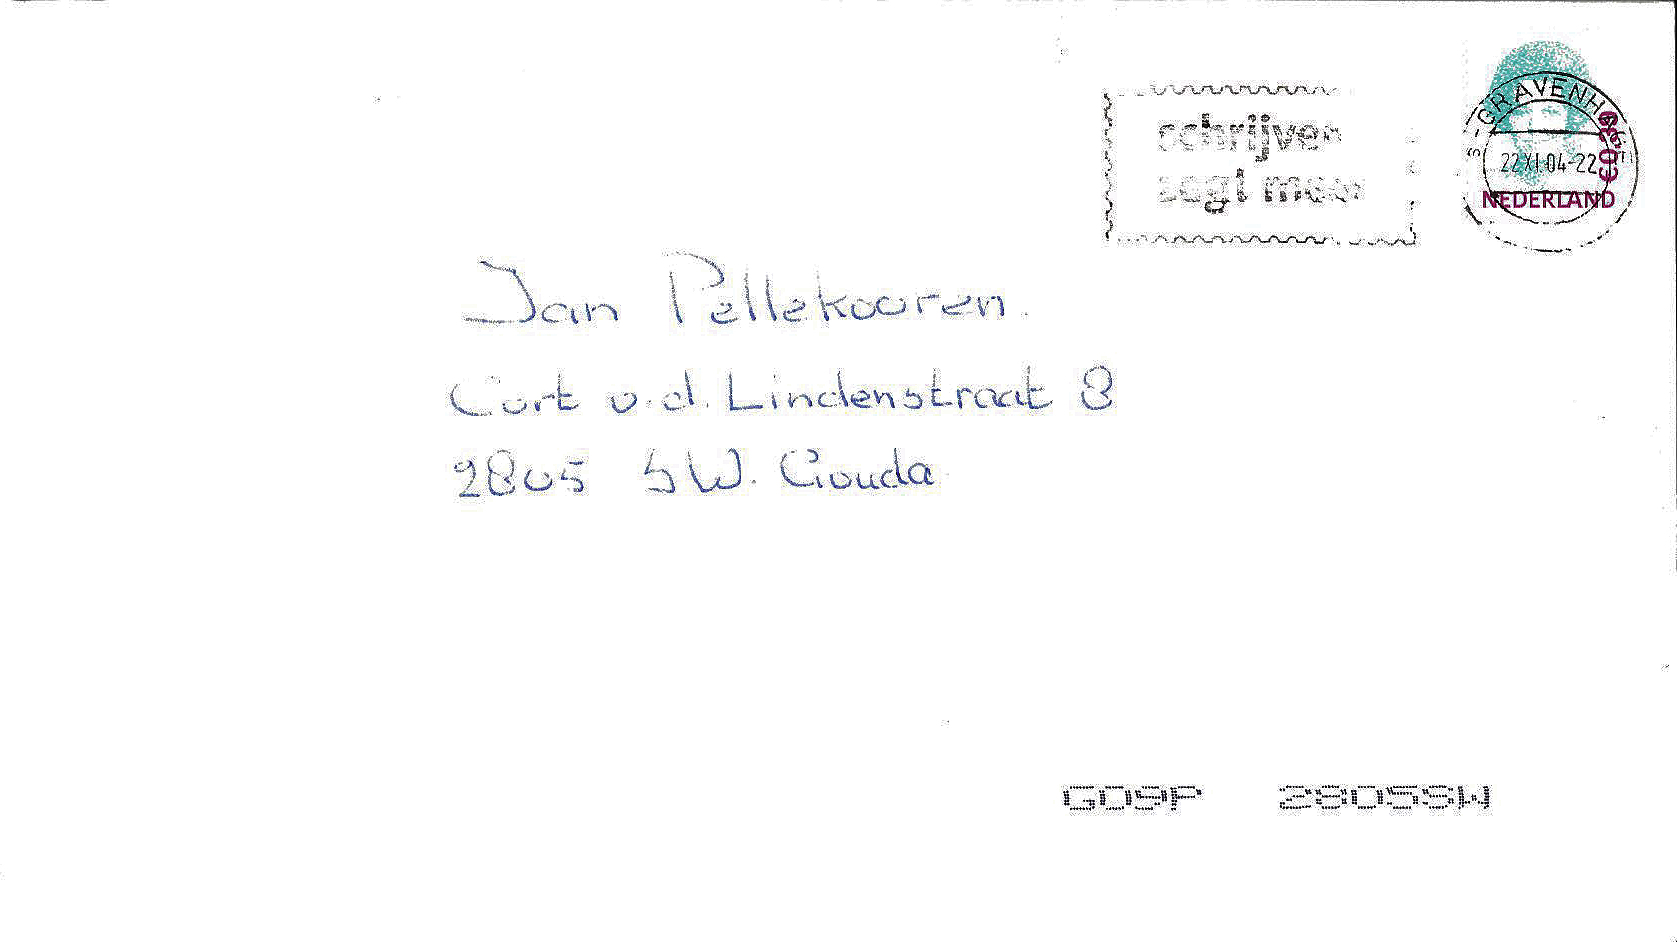 schrijven
zegt meer
'S-GRAVENHAGE
22 XI 04-22
€0,39
NEDERLAND
Jan Pellekooren.
Cort v.d. Lindenstraat 8
2805 SW. Gouda
GO9P 2805SW